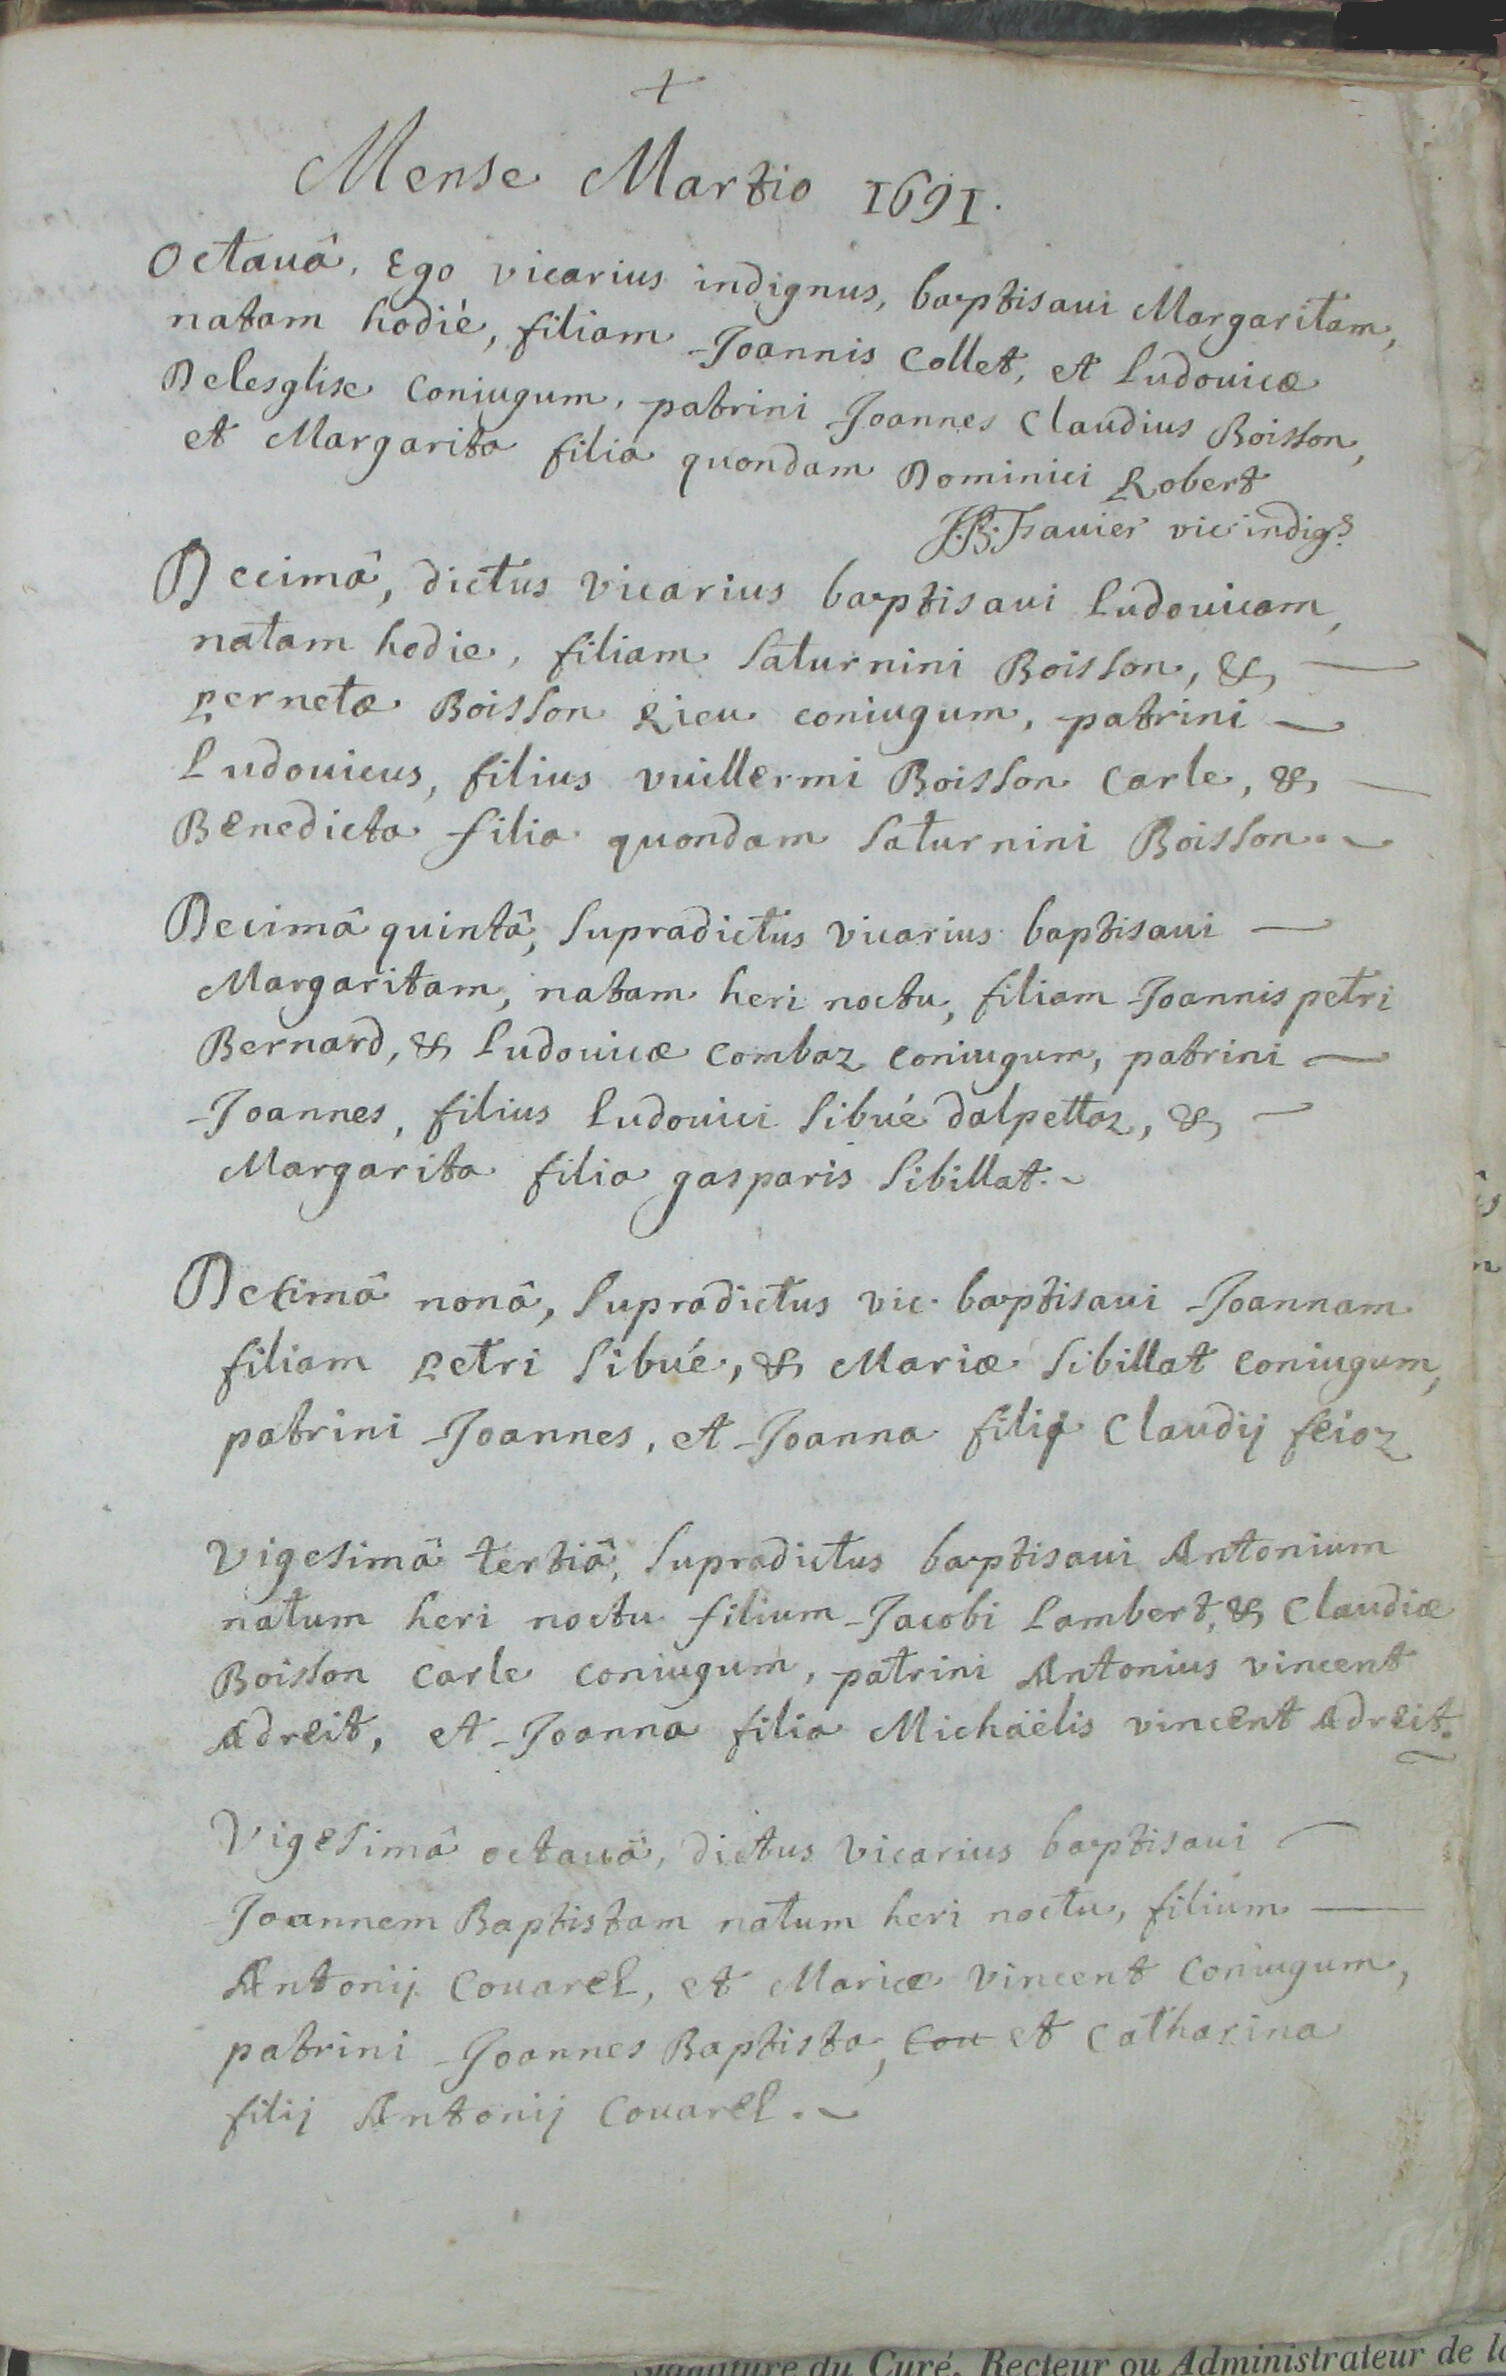 +
Mense Martio 1691.
Octauâ. Ego vicarius indignus, baptisaui Margaritam,
natam hodiè, filiam Joannis Collet, et Ludouicæ
Delesglise coniugum, patrini Joannes Claudius Boisson,
et Margarita filia quondam Dominici Robert
J.B. Frauier vic indigs.
Decimâ, dictus vicarius baptisaui Ludouicam,
natam hodie, filiam Saturnini Boisson, &
Pernetæ Boisson Rieu coniugum, patrini
Ludouicus, filius vuillermi Boisson Carle, &
Benedicta filia quondam Saturnini Boisson.
Decimâ quintâ, Supradictus vicarius baptisaui
Margaritam, natam heri noctu, filiam Joannis petri
Bernard, & Ludouicæ Combaz coniugum, patrini
Joannes, filius Ludouici Sibué dalpettaz, &
Margarita filia gasparis Sibillat.
Decimâ nonâ, Supradictus vic. baptisaui Joannam
filiam Petri Sibué, & Mariæ Sibillat coniugum,
patrini Joannes, et Joanna filij Claudij feioz
Vigesimâ tertiâ, Supradictus baptisaui Antonium
natum heri noctu filium Jacobi Lambert, & Claudiæ
Boisson Carle coniugum, patrini Antonius vincent
Adreit, et Joanna filia Michaëlis vincent Adreit.
Vigesimâ octauâ, dictus vicarius baptisaui
Joannem Baptistam natum heri noctu, filium
Antonij Couarel, et Mariæ Vincent Coniugum,
patrini Joannes Baptista, Cou et Catharina
filij Antonij Couarel.
Signature du Curé, Recteur ou Administrateur de la